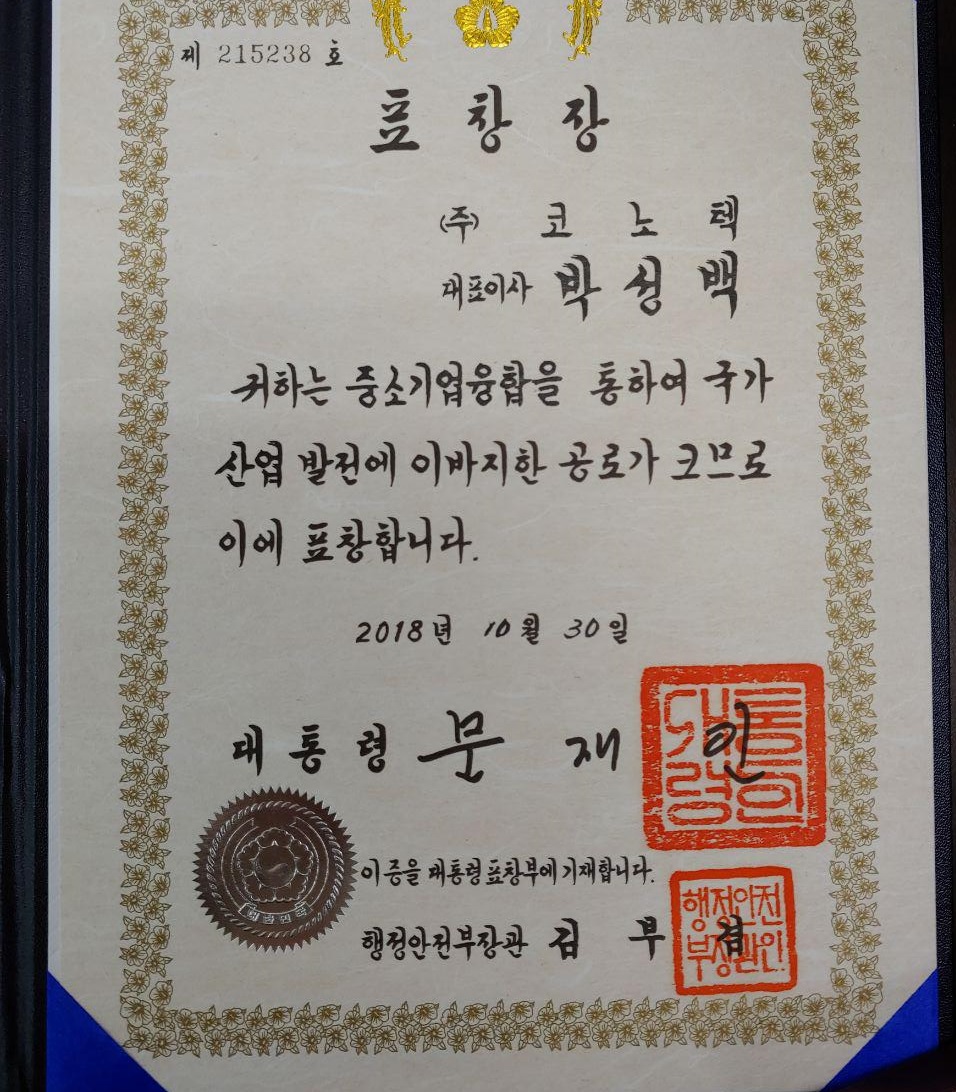 제 215238 호
표 창 장
(주) 코 노 텍
대표이사 박 성 백
귀하는 중소기업융합을 통하여 국가
산업 발전에 이바지한 공로가 크므로
이에 표창합니다.
2018년 10월 30일
대 통 령 문 재 인
대통령의인
이 증을 대통령 표창부에 기재합니다.
행정안전부장관 김 부 겸
행정안전
부장관인
대한민국